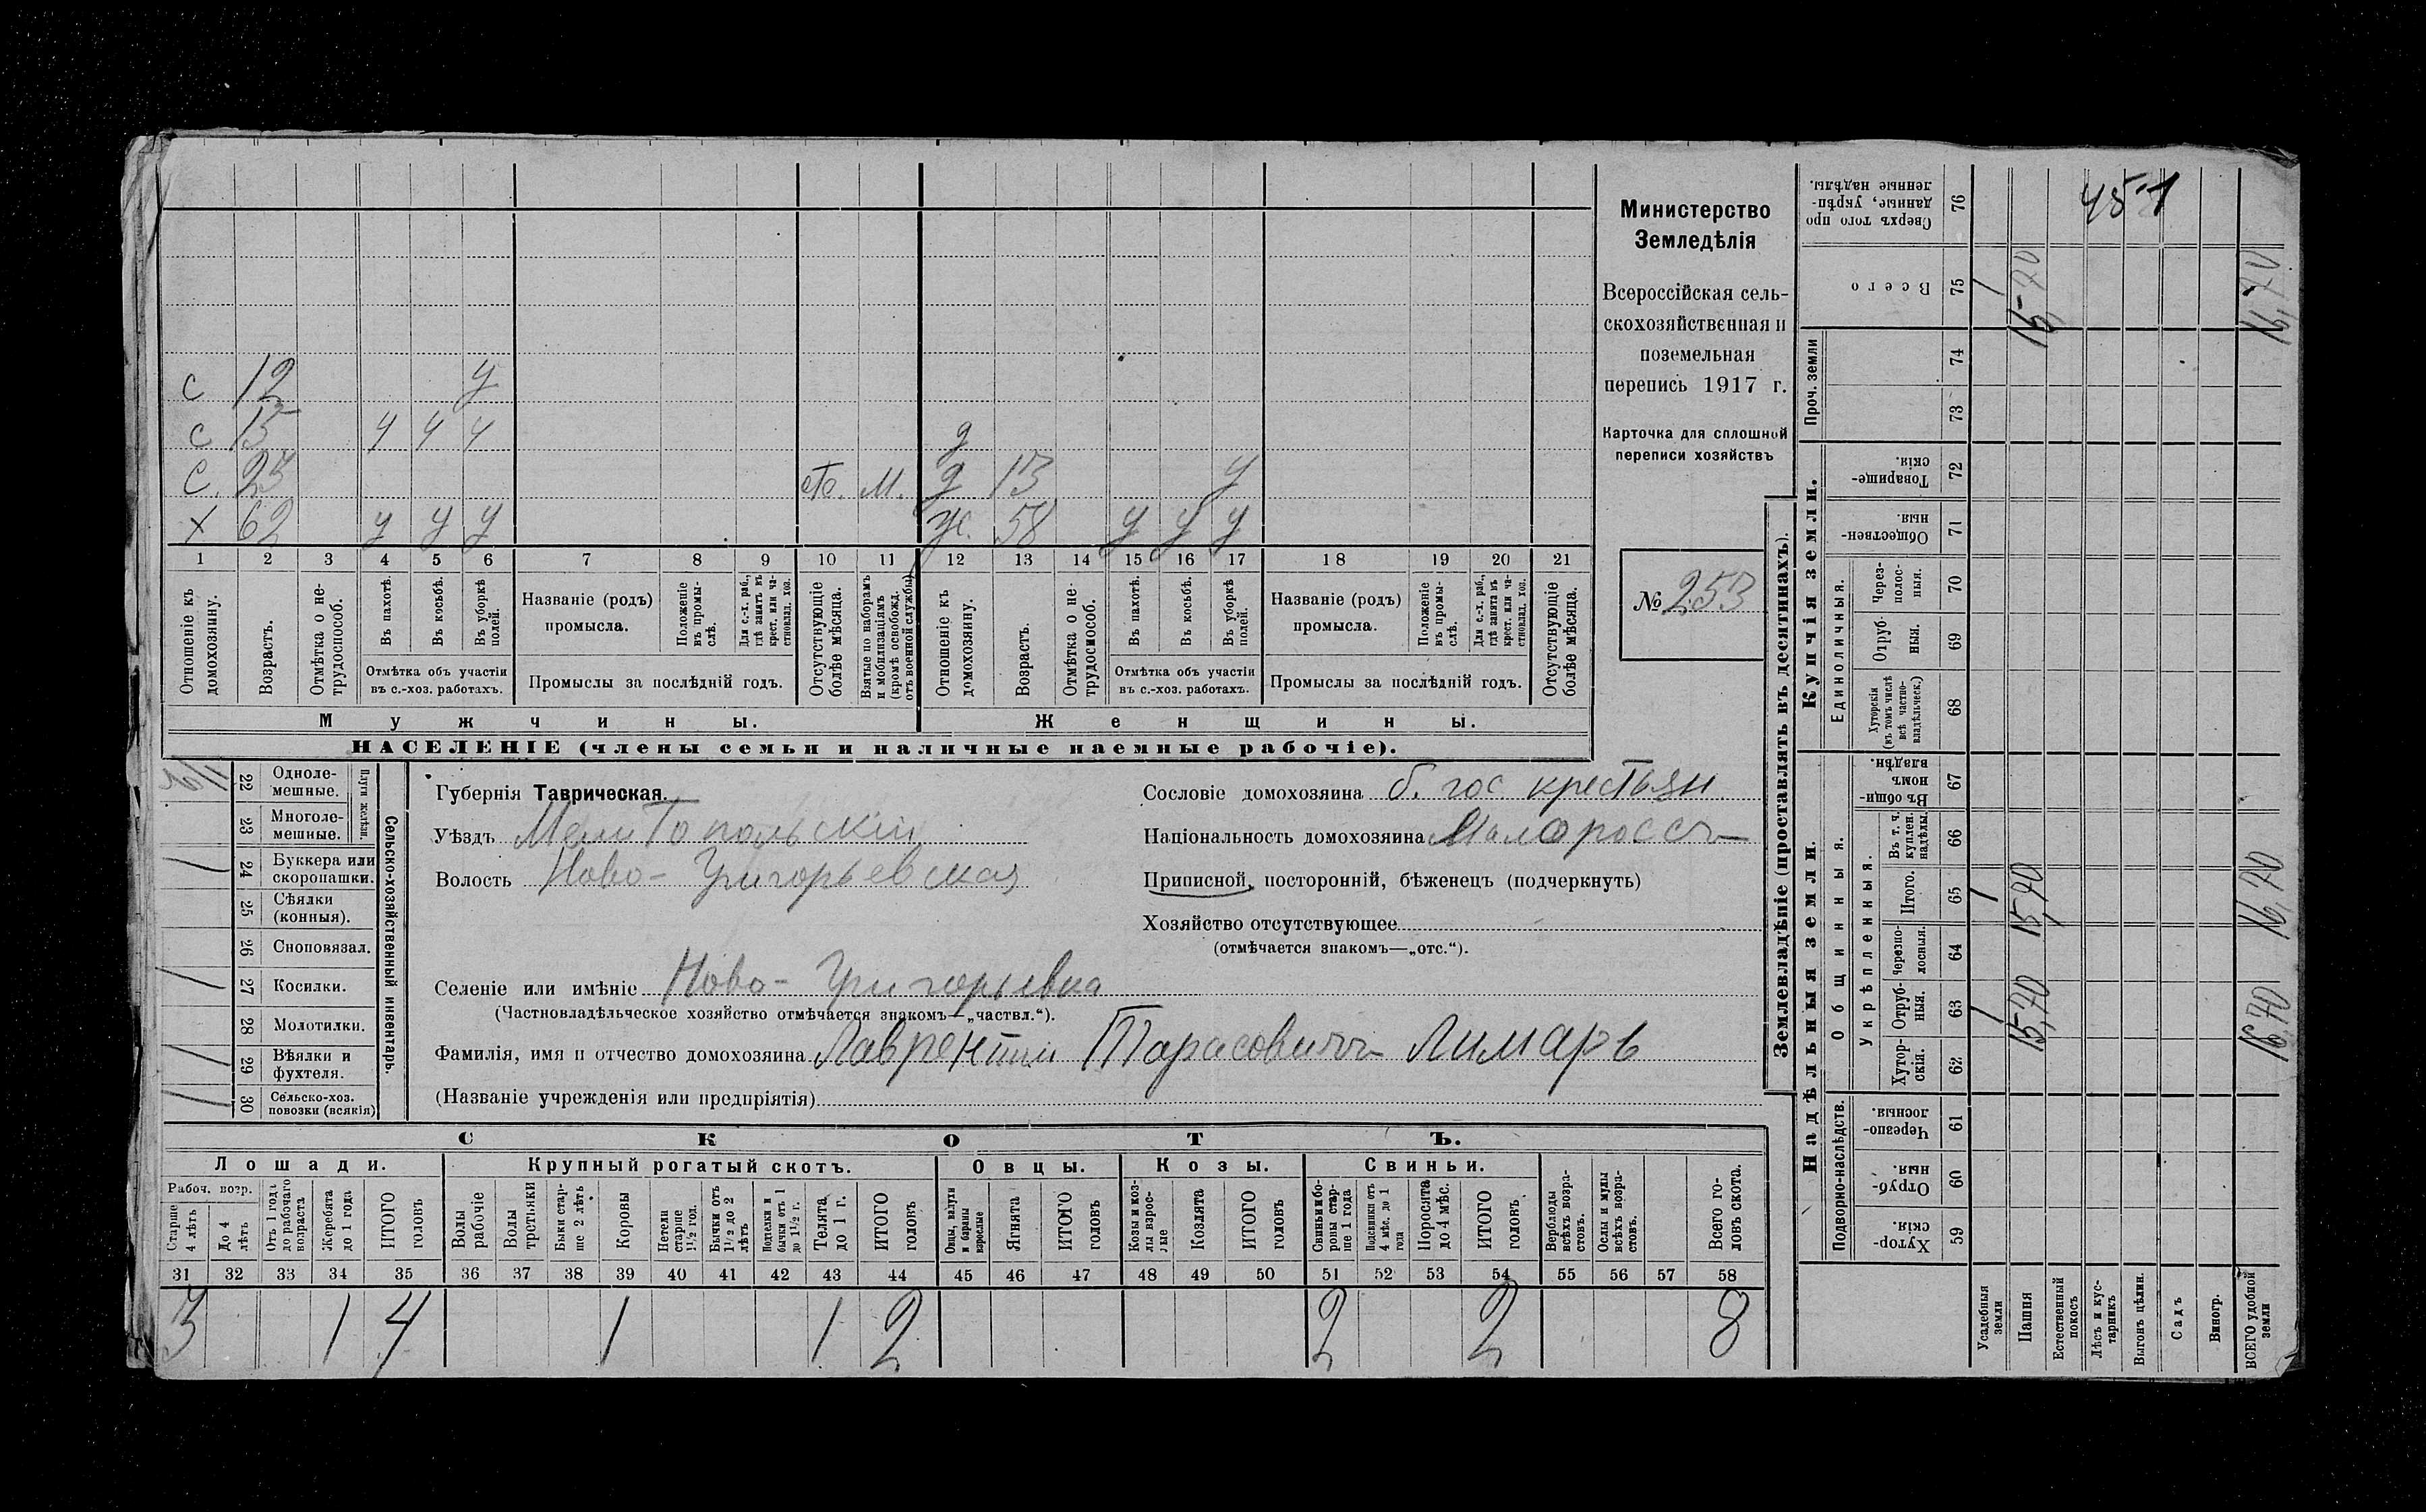 С 12 у
С 15 у у у д
С. 23 от. м. д 13 у
Х 62 у у у ж. 58 у у у
1 2 3 4 5 6 7 8 9 10 11 12 13 14 15 16 17 18 19 20 21
Отношеніе къ домохозяину.
Возрастъ.
Отмѣтка о нетрудоспособ.
Въ пахотѣ.
Въ косьбѣ.
Въ уборкѣ полей.
Отмѣтка объ участіи
въ с.-хоз. работахъ.
Названіе (родъ)
промысла.
Положеніе въ промыслѣ.
Для с.-х. раб., гдѣ занятъ въ крест. или частновлад. хоз.
Промыслы за послѣдній годъ.
Отсутствующіе болѣе мѣсяца.
Взятые по наборамъ и мобилизаціямъ (кромѣ освобожд. отъ военной службы).
Отношеніе къ домохозяину.
Возрастъ.
Отмѣтка о нетрудоспособ.
Въ пахотѣ.
Въ косьбѣ.
Въ уборкѣ полей.
Отмѣтка объ участіи
въ с.-хоз. работахъ.
Названіе (родъ)
промысла.
Положеніе въ промыслѣ.
Для с.-х. раб., гдѣ занята въ крест. или частновлад. хоз.
Промыслы за послѣдній годъ.
Отсутствующіе болѣе мѣсяца.
Мужчины.
Женщины.
НАСЕЛЕНІЕ (члены семьи и наличные наемные рабочіе).
Министерство
Земледѣлія
Всероссійская сель-
скохозяйственная и
поземельная
перепись 1917 г.
Карточка для сплошной
переписи хозяйствъ
№ 253
22 Однолемешные.
23 Многолемешные.
Плуги желѣзн.
24 Буккера или скоропашки. 1
25 Сѣялки (конныя).
26 Сноповязал.
27 Косилки. 1
28 Молотилки.
29 Вѣялки и фухтеля. 1
30 Сельско-хоз. повозки (всякія) 1
Сельско-хозяйственный инвентарь.
Губернія Таврическая.
Уѣздъ Мелитопольскій
Волость Ново-Григорьевская
Селеніе или имѣніе Ново-Григорьевка
(Частновладѣльческое хозяйство отмѣчается знакомъ—„частвл.“).
Фамилія, имя и отчество домохозяина Лаврентій Тарасовичъ Лимарь
(Названіе учрежденія или предпріятія)
Сословіе домохозяина б. гос. крестьян
Національность домохозяина Малороссъ
Приписной, посторонній, бѣженецъ (подчеркнуть)
Хозяйство отсутствующее
(отмѣчается знакомъ—„отс.“).
СКОТЪ.
Лошади.
Крупный рогатый скотъ.
Овцы.
Козы.
Свиньи.
Рабоч. возр.
Старше 4 лѣтъ
До 4 лѣтъ
Отъ 1 года до рабочаго возраста
Жеребята до 1 года
ИТОГО головъ
Волы рабочіе
Волы третьяки
Быки старше 2 лѣтъ
Коровы
Нетели старше 1½ год.
Бычки отъ 1½ до 2 лѣтъ
Подтелки и бычки отъ 1 до 1½ г.
Телята до 1 г.
ИТОГО головъ
Овцы, валухи и бараны взрослые
Ягнята
ИТОГО головъ
Козы и козлы взрослые
Козлята
ИТОГО головъ
Свиньи и бороны старше 1 года
Подсвинки отъ 4 мѣс. до 1 года
Поросята до 4 мѣс.
ИТОГО головъ
Верблюды всѣхъ возрастовъ.
Ослы и мулы всѣхъ возрастовъ.
Всего головъ скота.
31 32 33 34 35 36 37 38 39 40 41 42 43 44 45 46 47 48 49 50 51 52 53 54 55 56 57 58
3 1 4 1 1 2 2 2 8
Землевладѣніе (проставлять въ десятинахъ).
Надѣльныя земли.
Купчія земли.
Проч. земли
Подворно-наслѣдств.
Общинныя.
Укрѣпленныя.
Единоличныя.
Сверхъ того проданные, укрѣпленные надѣлы. 76
451
Всего 75 1 15,70 16,70
74
73
Товарищескія. 72
Общественныя. 71
Черезполосныя. 70
Отрубныя. 69
Хуторскія (въ томъ числѣ всѣ частновладѣльческ.) 68
Въ общинномъ владѣн. 67
Въ т. ч. куплен. надѣлы. 66
Итого. 65 1 15,70 16,70
Черезполосныя. 64
Отрубныя. 63 1 15,70 16,70
Хуторскія. 62
Черезполосныя. 61
Отрубныя. 60
Хуторскія. 59
Усадебныя земли
Пашня
Естественный покосъ
Лѣсъ и кустарникъ
Выгонъ цѣлин.
Садъ
Виногр.
ВСЕГО удобной земли